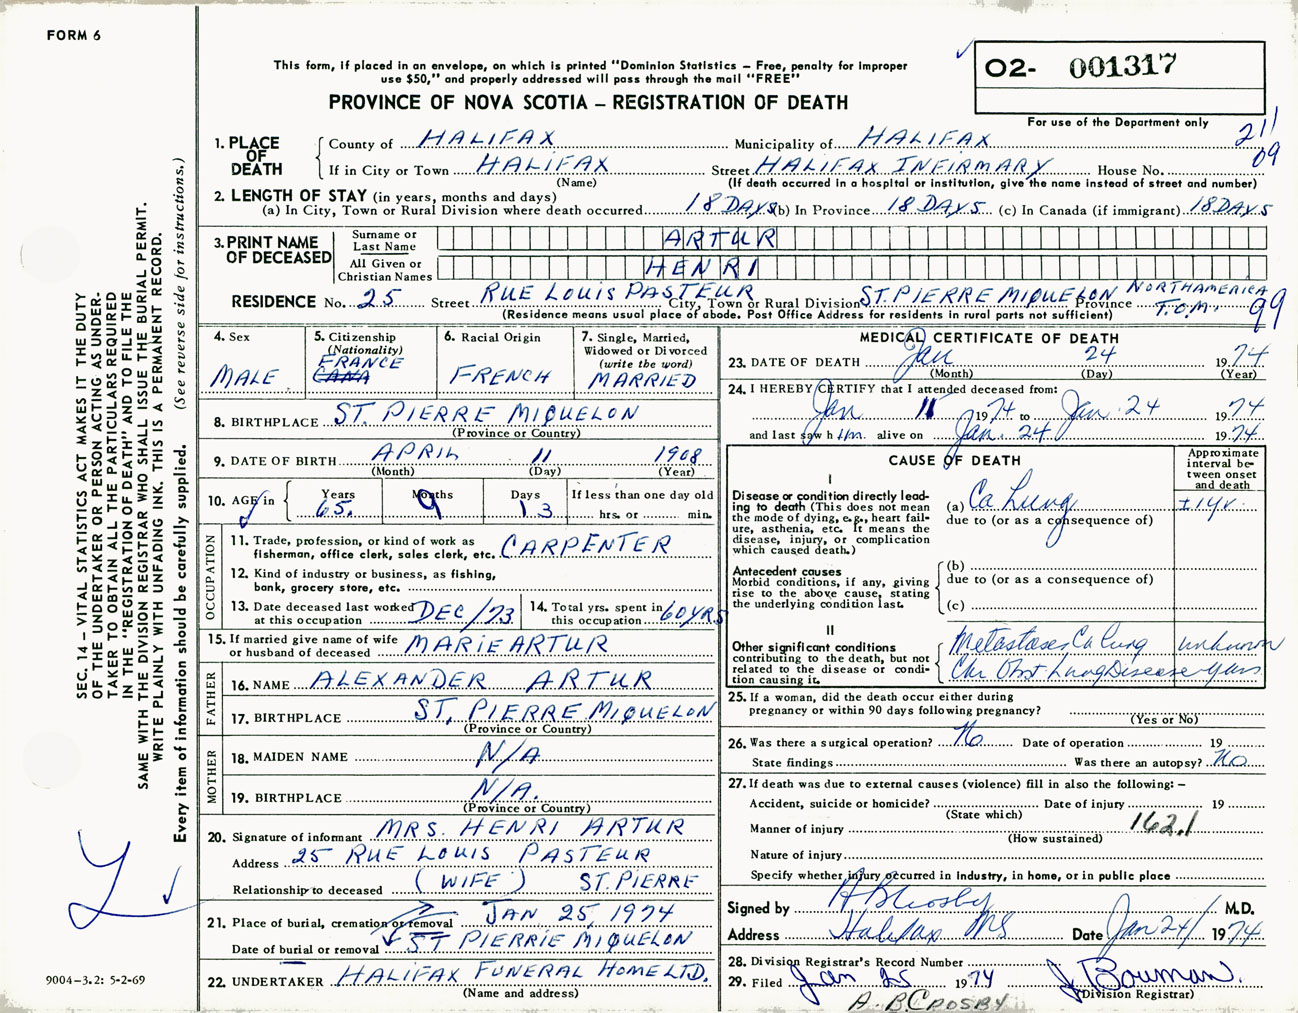 FORM 6
This form, if placed in an envelope, on which is printed "Dominion Statistics – Free, penalty for improper
use $50," and properly addressed will pass through the mail "FREE"
PROVINCE OF NOVA SCOTIA – REGISTRATION OF DEATH
02- 001317
For use of the Department only
211
09
1. PLACE OF DEATH
County of HALIFAX Municipality of HALIFAX
If in City or Town HALIFAX Street HALIFAX INFIRMARY House No.
(Name) (If death occurred in a hospital or institution, give the name instead of street and number)
2. LENGTH OF STAY (in years, months and days)
(a) In City, Town or Rural Division where death occurred 18 DAYS (b) In Province 18 DAYS (c) In Canada (if immigrant) 18 DAYS
3. PRINT NAME OF DECEASED
Surname or Last Name ARTUR
All Given or Christian Names HENRI
RESIDENCE No. 25 Street RUE LOUIS PASTEUR City, Town or Rural Division ST. PIERRE MIQUELON Province NORTH AMERICA T.O.M. 99
(Residence means usual place of abode. Post Office Address for residents in rural parts not sufficient)
4. Sex
MALE
5. Citizenship
(Nationality)
FRANCE
CANA
6. Racial Origin
FRENCH
7. Single, Married,
Widowed or Divorced
(write the word)
MARRIED
8. BIRTHPLACE ST. PIERRE MIQUELON
(Province or Country)
9. DATE OF BIRTH APRIL 11 1908
(Month) (Day) (Year)
10. AGE in
Years 65.
Months 9
Days 13
If less than one day old
hrs. or min.
OCCUPATION
11. Trade, profession, or kind of work as
fisherman, office clerk, sales clerk, etc. CARPENTER
12. Kind of industry or business, as fishing,
bank, grocery store, etc.
13. Date deceased last worked
at this occupation DEC/73
14. Total yrs. spent in
this occupation 60 YRS
15. If married give name of wife
or husband of deceased MARIE ARTUR
FATHER
16. NAME ALEXANDER ARTUR
17. BIRTHPLACE ST. PIERRE MIQUELON
(Province or Country)
MOTHER
18. MAIDEN NAME N/A
19. BIRTHPLACE N/A.
(Province or Country)
20. Signature of informant MRS. HENRI ARTUR
Address 25 RUE LOUIS PASTEUR
Relationship to deceased (WIFE) ST. PIERRE
21. Place of burial, cremation or removal JAN 25, 1974
Date of burial or removal ST PIERRIE MIQUELON
22. UNDERTAKER HALIFAX FUNERAL HOME LTD.
(Name and address)
MEDICAL CERTIFICATE OF DEATH
23. DATE OF DEATH Jan 24 1974
(Month) (Day) (Year)
24. I HEREBY CERTIFY that I attended deceased from:
Jan 11 1974 to Jan. 24 1974
and last saw him alive on Jan. 24 1974
CAUSE OF DEATH
Approximate
interval be-
tween onset
and death
I
Disease or condition directly lead-
ing to death (This does not mean
the mode of dying, e.g., heart fail-
ure, asthenia, etc. It means the
disease, injury, or complication
which caused death.)
(a) Ca Lung ± 1 yr.
due to (or as a consequence of)
Antecedent causes
Morbid conditions, if any, giving
rise to the above cause, stating
the underlying condition last.
(b)
due to (or as a consequence)
(c)
II
Other significant conditions
contributing to the death, but not
related to the disease or condi-
tion causing it.
Metastases Ca lung unknown
Chr Obst Lung Disease years
25. If a woman, did the death occur either during
pregnancy or within 90 days following pregnancy?
(Yes or No)
26. Was there a surgical operation? No Date of operation 19
State findings Was there an autopsy? No
27. If death was due to external causes (violence) fill in also the following: –
Accident, suicide or homicide? Date of injury 19
(State which)
Manner of injury 162.1
(How sustained)
Nature of injury
Specify whether injury occurred in Industry, in home, or in public place
Signed by A B Crosby M.D.
Address Halifax NS Date Jan 24/ 1974
28. Division Registrar's Record Number
29. Filed Jan 25 1974 J. Bowman.
(Division Registrar)
A. B. CROSBY
SEC. 14 – VITAL STATISTICS ACT MAKES IT THE DUTY
OF THE UNDERTAKER OR PERSON ACTING AS UNDER-
TAKER TO OBTAIN ALL THE PARTICULARS REQUIRED
IN THE "REGISTRATION OF DEATH" AND TO FILE THE
SAME WITH THE DIVISION REGISTRAR WHO SHALL ISSUE THE BURIAL PERMIT.
WRITE PLAINLY WITH UNFADING INK. THIS IS A PERMANENT RECORD.
Every item of information should be carefully supplied. (See reverse side for instructions.)
9004–3.2: 5-2-69